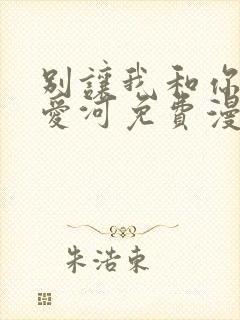 別讓我和你
愛河免費漫
朱浩東